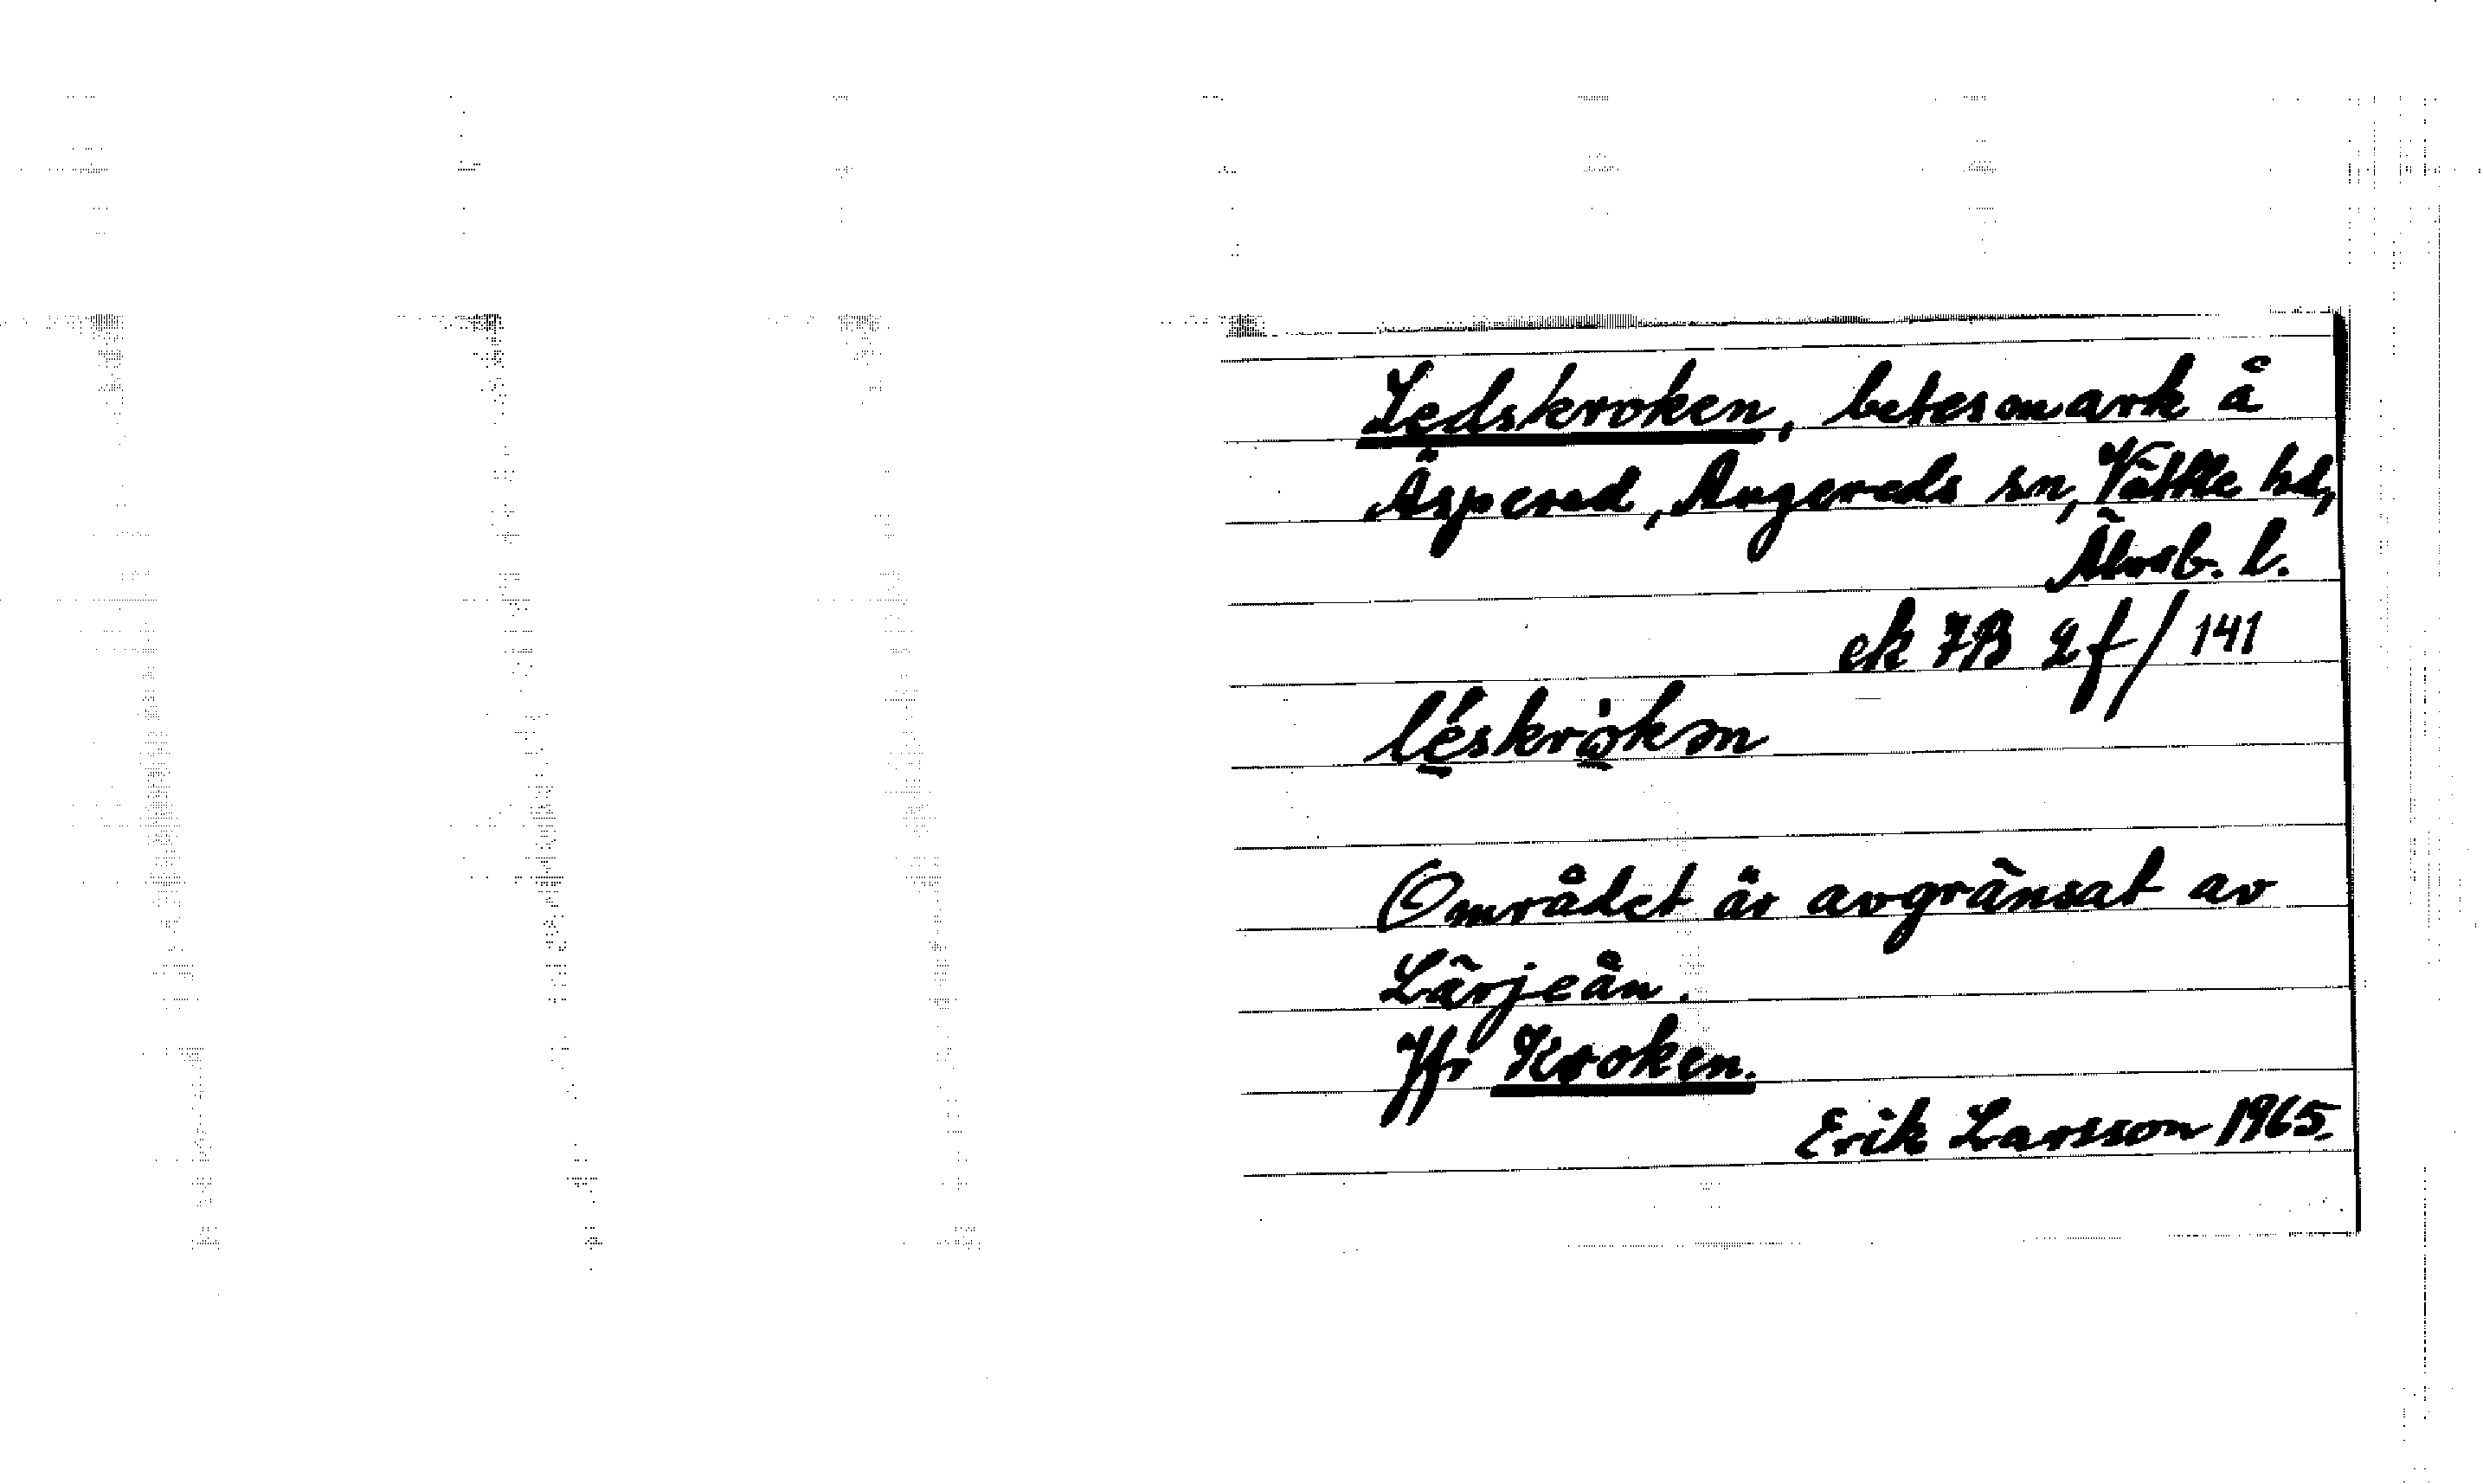 Ledskroken, betesmark å
Äspered, Angereds sn, Vättle hd,
Älvsb. l.
ek 7B 2f/141
Området är avgränsat av
Lärjeån.
Jfr Kroken.
Erik Larsson 1965.